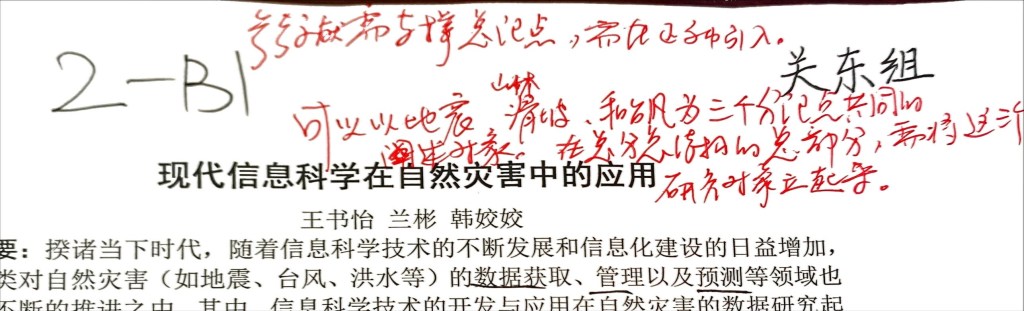 参考文献需支撑总论点，需在正文中引入。
2-B1
关东组
可以以地震、滑坡、和台风为三个分论点共同的
阐述对象。在总分总结构的总部分，需将这三个
研究对象立起来。
现代信息科学在自然灾害中的应用
王书怡 兰彬 韩姣姣
要：揆诸当下时代，随着信息科学技术的不断发展和信息化建设的日益增加，
类对自然灾害（如地震、台风、洪水等）的数据获取、管理以及预测等领域也
不断的推进之中。其中，信息科学技术的开发与应用在自然灾害的数据研究起